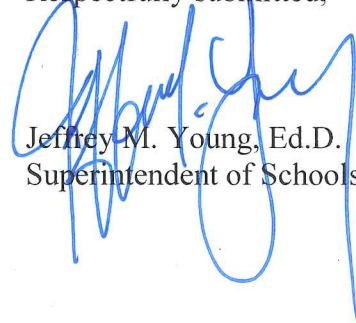 Respectfully submitted,
Jeffrey M. Young, Ed.D.
Superintendent of Schools